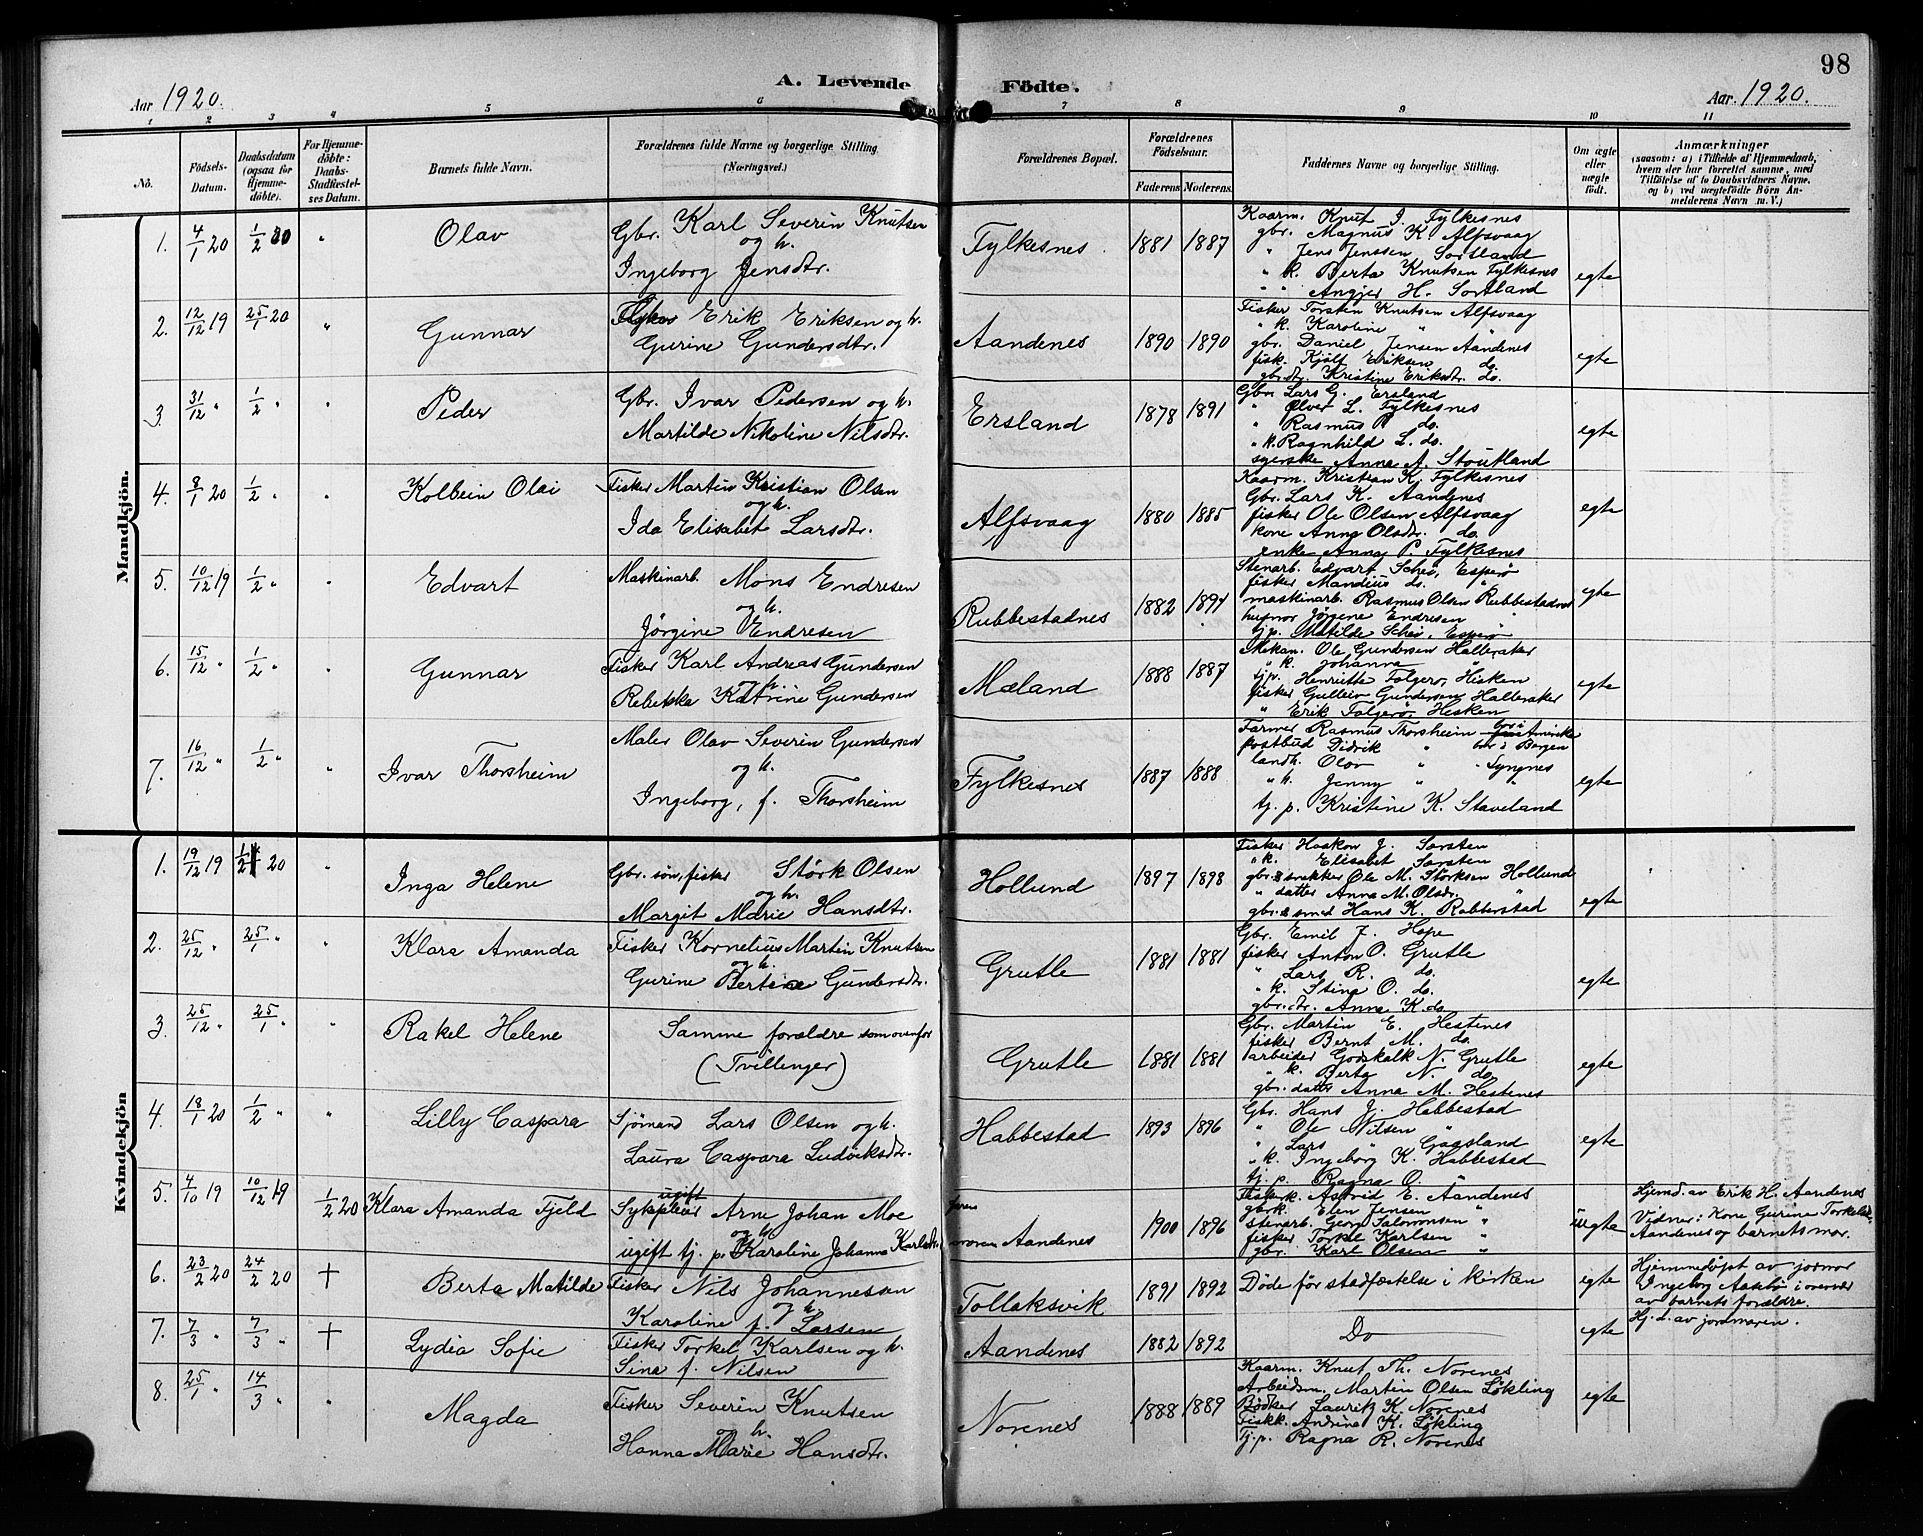 98
Aar 1920.
A. Levende Födte.
Aar. 1920.
1 2 3 4 5 6 7 8 9 10 11
No.
Födsels-Datum.
Daabsdatum (ogsaa for Hjemme-döbte).
For Hjemme-döbte: Daabs-Stadfæstel-ses Datum.
Barnets fulde Navn.
Forældrenes fulde Navne og borgerlige Stilling. (Næringsvei.)
Forældrenes Bopæl.
Forældrenes Födselsaar.
Faderens. Moderens.
Faddernes Navne og borgerlige Stilling.
Om ægte eller uægte födt.
Anmærkninger
(saasom: a) i Tilfælde af Hjemmedaab, hvem der har forrettet samme, med Tilföielse af to Daabsvidners Navne, og b) ved uægtefödte Börn An-melderens Navn m. V.)
Mandkjön.
1. 4/1 20 1/2 20 " Olav
Gbr. Karl Severin Knutsen
og h.
Ingeborg Jensdtr.
Fylkesnes. 1881 1887
Kaarm. Knut I. Fylkesnes
gbr. Magnus K. Alfsvaag
" Jens Jenssen Sortland
" k. Berta Knutsen Fylkesnes
" " Angjer H. Sortland
egte
2. 12/12 19 25/1 20 " Gunnar
Erik Eriksen og h.
Gurine Gundersdtr.
Aandenes 1890 1890
Fisker Torsten Knutsen Alfsvaag
" k. Karoline " "
gbr. Daniel Jensen Aandenes
fisk. Kjölf Eriksen do.
gbr.dtr. Kristine Eriksdtr. do.
egte
3. 31/12 " 1/2 " " Peder
Gbr. Ivar Pedersen og h.
Martilde Nikoline Nilsdtr.
Ersland 1878 1891
Gbr. Lars G. Ersland
" Olver L. Fylkesnes
" Rasmus P. do.
" k. Ragnhild L. do.
syerske Anna A. Stoutland
egte
4. 8/1 20 1/2 " " Kolbein Olai
Fisker Martin Kristian Olsen
og h.
Ida Elisabet Larsdtr.
Alfsvaag 1880 1885
Kaarm. Kristian K. Fylkesnes
Gbr. Lars K. Aandenes
fisker Ole Olsen Alfsvaag
kone Anna Olsdtr. do.
enke Anna P. Fylkesnes
egte
5. 10/12 19 1/2 " " Edvart
Maskinarb. Mons Endresen
og h.
Jørgine Endresen
Rubbestadnes 1882 1891
Stenarb. Edvart Schei, Esperö
fisker Mandius do. "
maskinarb. Rasmus Olsen Rubbestadnes
husmor Jörgene Endresen "
tj.p. Matilde Schei, Esperö
egte
6. 15/12 " 1/2 " " Gunnar
Fisker Karl Andreas Gundersen
og h.
Rebekka Katrine Gundersen
Mæland 1888 1887
Mekan. Ole Gundersen Halleraker
" k. Johanna "
tj.p. Henriette Folgerø, Hisken
fisker Gulleiv Gundersen Halleraker
" Erik Folgerø, Hesken
egte
7. 16/12 " 1/2 " " Ivar Thorsheim
Maler Olav Severin Gundersen
og h.
Ingeborg, f. Thorsheim
Fylkesnes 1887 1888
Farmer Rasmus Thorsheim bor i Amerika
postbud Didrik " bor i Bergen
landh. Olav " Syngnes
" k. Jenny " "
tj. p. Kristine K. Staveland
egte
Kvindekjön
1. 19/12 19 1/2 20 " Inga Helene
Gbr. sön, fisker Störk Olsen
og h.
Margit Marie Hansdtr.
Hollund 1897 1898
Fisker Haakon J. Sørsten
" k. Elisabet Sørsten
gbr. & snekker Ole M. Störksen Hollund
" datter Anna M. Olsdtr. "
gbr. & smed Hans K. Robberstad
egte
2. 25/12 " 25/1 " " Klara Amanda
Fisker Kornelius Martin Knutsen
og h.
Gurine Bertine Gundersdtr.
Grutle 1881 1881
Gbr. Emil J. Hope
fisker Anton O. Grutle
" Lars R. do.
" k. Stina O. do.
gbr.dtr. Anna K. do
egte
3. 25/12 " 25/1 " " Rakel Helene
Samme forældre som ovenfor
(Tvillinger)
Grutle 1881 1881
Gbr. Martin E. Hestenes
fisker Bernt M. do.
arbeider Godskalk N. Grutle
" k. Berta N. do
gbr. datter Anna M. Hestenes
egte
4. 18/1 20 1/2 " " Lilly Caspara
Sjömand Lars Olsen og h.
Laura Caspara Ludviksdtr.
Habbestad 1893 1896
Gbr. Hans J. Habbestad
" Ole Nilsen "
" Lars " Gaasland
" k. Ingeborg K. Habbestad
tj. p. Ragna O. "
egte
5. 4/10 19 10/12 19 1/2 20 Klara Amanda Fjeld
ugift
Arne Johan Moe
og
ugift tj. p. Karoline Johanna Karlsdtr.
moren Aandenes 1900 1896
Fiskerk. Astrid E. Aandenes
gbrk. Elen Jensen "
stenarb. Georg Salomonsen "
fisker Torkel Karlsen "
gbr. Karl Olsen "
uegte
Hjemd. av Erik H. Aandenes
Vidner: Kone Gurine
Aandenes og barnets mor.
6. 23/2 20 24/2 20 † Berta Matilde
Fisker Nils Johannessen
og h.
Karoline f. Larsen
Tollaksvik 1891 1892
Döde för stadfæstelse i kirken
egte
Hjemmedöpt av jormor
Ingeborg i overvær
av barnets forældre.
7. 7/3 " 7/3 " † Lydia Sofie
Fisker Torkel Karlsen og h.
Sina f. Nilsen
Aandenes 1882 1892
Do
egte
Hj. d. av jordmoren.
8. 25/1 " 14/3 " " Magda
Fisker Severin Knutsen
h.
Hanna Marie Hansdtr.
Norenes 1888 1889
Kaarm. Knut Th. Norenes
Arbeidsm. Martin Olsen Lökling
Bödker Lauritz K. Norenes
Fiskk. Andrine K. Lökling
Tj.p. Ragna R. Norenes
egte